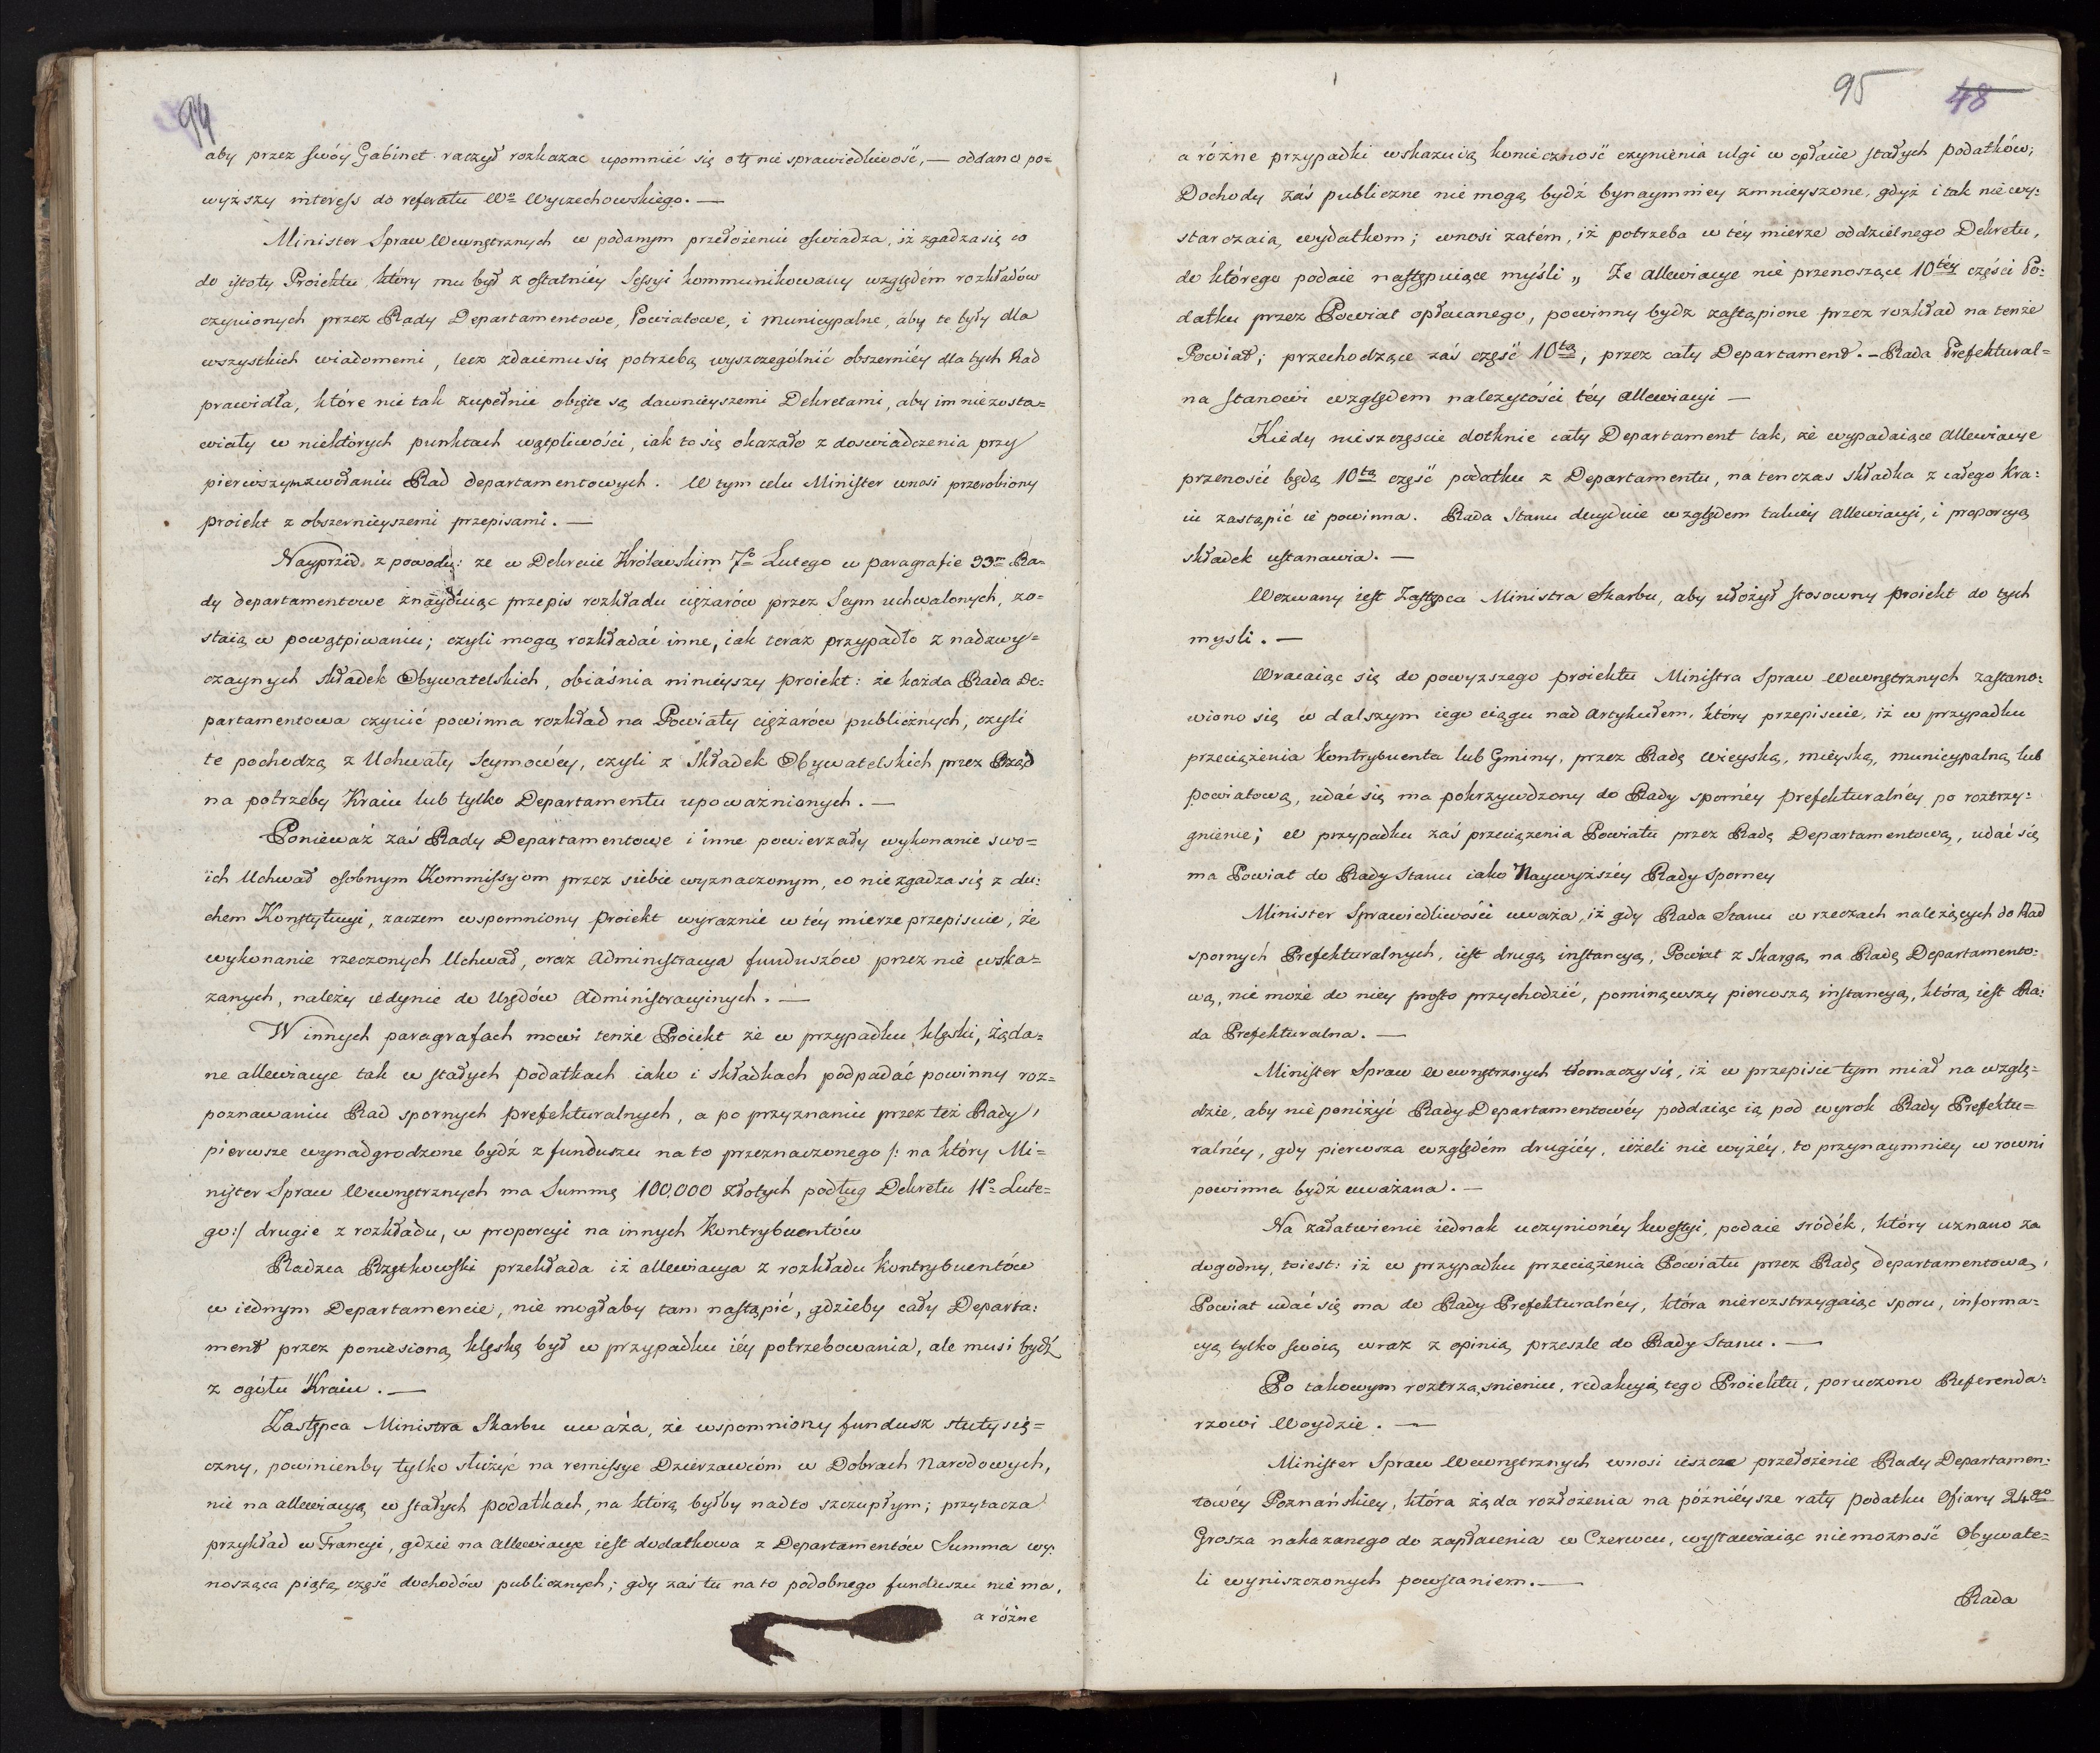 94
aby przez swóy Gabinet raczył rozkazac upomnieć się o tę nie sprawiedliwość, — oddano po=
wyższy interess do referatu Wo Wyczechowskiego. —
Minister Spraw Wewnętrznych w podanym przełożeniu oswiadza, iż zgadza się co
do istoty Proiektu, który mu był z ostatniéy Sessyi kommunikowany względém rozkładów
czynionych przez Rady Departamentowe, Powiatowe, i Municypalne, aby te były dla
wszystkich wiadomemi, lecz zdaiemusię potrzebą wyszczególnić obszerniéy dla tych Rad
prawidła, które nie tak zupełnie obięte są dawnieyszemi Dekretami, aby im niezosta=
wiały w niektórych punktach wątpliwości, iak to się okazało z doswiadczenia przy
pierwszym zwołaniu Rad departamentowych. W tym celu Minister wnosi przerobiony
proiekt z obszernieyszemi przepisami. —
Nayprzód z powodu: ze w Dekrecie Królewskim 7o Lutego w paragrafie 33m Ra=
dy departamentowe znayduiąc przepis rozkładu ciężarów przez Seym uchwalonych, zo=
staią w powątpiwaniu; czyli mogą rozkładać inne, iak teraz przypadło z nadzwy=
czaynych składek Obywatelskich, obiaśnia ninieyszy proiekt: że każda Rada De:
partamentowa czynić powinna rozkład na Powiaty ciężarów publicznych, czyli
te pochodzą z Uchwały Seymowéy, czyli z Składek Obywatelskich przez Rząd
na potrzeby Kraiu lub tylko Departamentu upoważnionych. —
Ponieważ zaś Rady Departamentowe i inne powierzały wykonanie swo=
ich Uchwał osobnym Kommissyom przez siebie wyznaczonym, co nie zgadza się z du:
chem Konstytucyi, zaczem wspomniony proiekt wyraznie w téy mierze przepisuie, że
wykonanie rzeczonych Uchwał, oraz Administracya funduszów przez nie wska=
zanych, należy iedynie do Urzędów Administracyinych. —
W innych paragrafach mowi tenże Proiekt że w przypadku klęski, żąda=
ne allewiacye tak w stałych podatkach iako i składkach podpadać powinny roz=
poznawaniu Rad spornych prefekturalnych, a po przyznaniu przez też Rady,
pierwsze wynadgrodzone bydź z funduszu na to przeznaczonego /: na który Mi=
nister Spraw Wewnętrznych ma Summę 100,000 złotych podług Dekretu 11o Lute=
go:/ drugie z rozkładu, w proporcyi na innych Kontrybuentów
Radzca Rzętkowski przekłada iż allewiacya z rozkładu Kontrybuentów
w iednym Departamencie, nie mogłaby tam nastąpić, gdzieby cały Departa:
ment przez poniesioną klęskę był w przypadku iéy potrzebowania, ale musi bydź
z ogółu Kraiu. —
Zastępca Ministra Skarbu uważa, że wspomniony fundusz stutysię=
czny, powinienby tylko służyć na remissye Dzierzawcóm w Dobrach Narodowych,
nie na allewiacyą w stałych podatkach, na którą byłby nadto szczupłym; przytacza
przykład w Francyi, gdzie na allewiacye iest dodatkowa z Departamentów Summa wy:
nosząca piątą część dochodów publicznych; gdy zaś tu na to podobnego funduszu nie ma,
a różne
95 48
a różne przypadki wskazuią konieczność czynienia ulgi w opłacie stałych podatków;
Dochody zaś publiczne nie mogą bydź bynaymniey zmnieyszone, gdyż i tak nie wy:
starczaią wydatkom; wnosi zatém, iż potrzeba w téy mierze oddzielnego Dekretu,
do którego podaie następuiące myśli „ Że allewiacye nie przenoszące 10téy części Po:
datku przez Powiat opłacanego, powinny bydz zastąpione przez rozkład na tenże
Powiat; przechodzące zaś część 10tą, przez cały Departament. – Rada Prefektural=
na stanowi względem nalezytości téy allewiacyi —
Kiedy nieszczęscie dotknie cały Departament tak, że wypadaiące allewiacye
przenosić będą 10tą część podatku z Departamentu, na ten czas składka z całego kra:
iu zastąpić ie powinna. Rada Stanu decyduie względem takiey allewiacyi, i proporcyą
składek ustanawia. —
Wezwany iest Zastępca Ministra Skarbu, aby ułożył stosowny proiekt do tych
mysli. —
Wracaiąc się do powyzszego proiektu Ministra Spraw Wewnętrznych zastano:
wiono się w dalszym iego ciągu nad artykułem, który przepisuie, iż w przypadku
przeciążenia Kontrybuenta lub Gminy, przez Radę wieyską, mieyską, municypalną lub
powiatową, udać się ma pokrzywdzony do Rady spornéy prefekturalnéy po roztrzy:
gnienie; W przypadku zaś przeciążenia Powiatu przez Radę Departamentową, udać się
ma Powiat do Rady Stanu iako Naywyższéy Rady sporney
Minister Sprawiedliwości uważa, iż gdy Rada Stanu w rzeczach należących do Rad
spornych Prefekturalnych, iest drugą instancyą, Powiat z skargą na Radę Departamento:
wą, nie może do niey prosto przychodzić, pominąwszy pierwszą instancyą, którą iest Ra:
da Prefekturalna. —
Minister Spraw Wewnętrznych tłomaczy się, iż w przepisie tym miał na wzglę=
dzie, aby nie poniżyć Rady Departamentowéy poddaiąc ią pod wyrok Rady Prefektu=
ralnéy, gdy pierwsza względém drugiéy, ieżeli nie wyżéy, to przynaymniey w rowni
powinna bydź uważana. —
Na załatwienie iednak uczynionéy kwestyi, podaie sródék, który uznano za
dogodny, toiest: iż w przypadku przeciążenia Powiatu przez Radę departamentową,
Powiat udać się ma do Rady Prefekturalnéy, która nierozstrzygaiąc sporu, informa=
cyą tylko swoią wraz z opinią przeszle do Rady Stanu. —
Po takowym roztrząsnieniu, redakcyią tego Proiektu, poruczono Referenda:
rzowi Woydzie. —
Minister Spraw Wewnętrznych wnosi ieszcze przełożenie Rady Departamen:
towéy Poznańskiey, która żąda rozłożenia na pózniéysze raty podatku Ofiary 24go
Grosza nakazanego do zapłacenia w Czerwcu, wystawiaiąc niemozność Obywate=
li wyniszczonych powstaniem. —
Rada